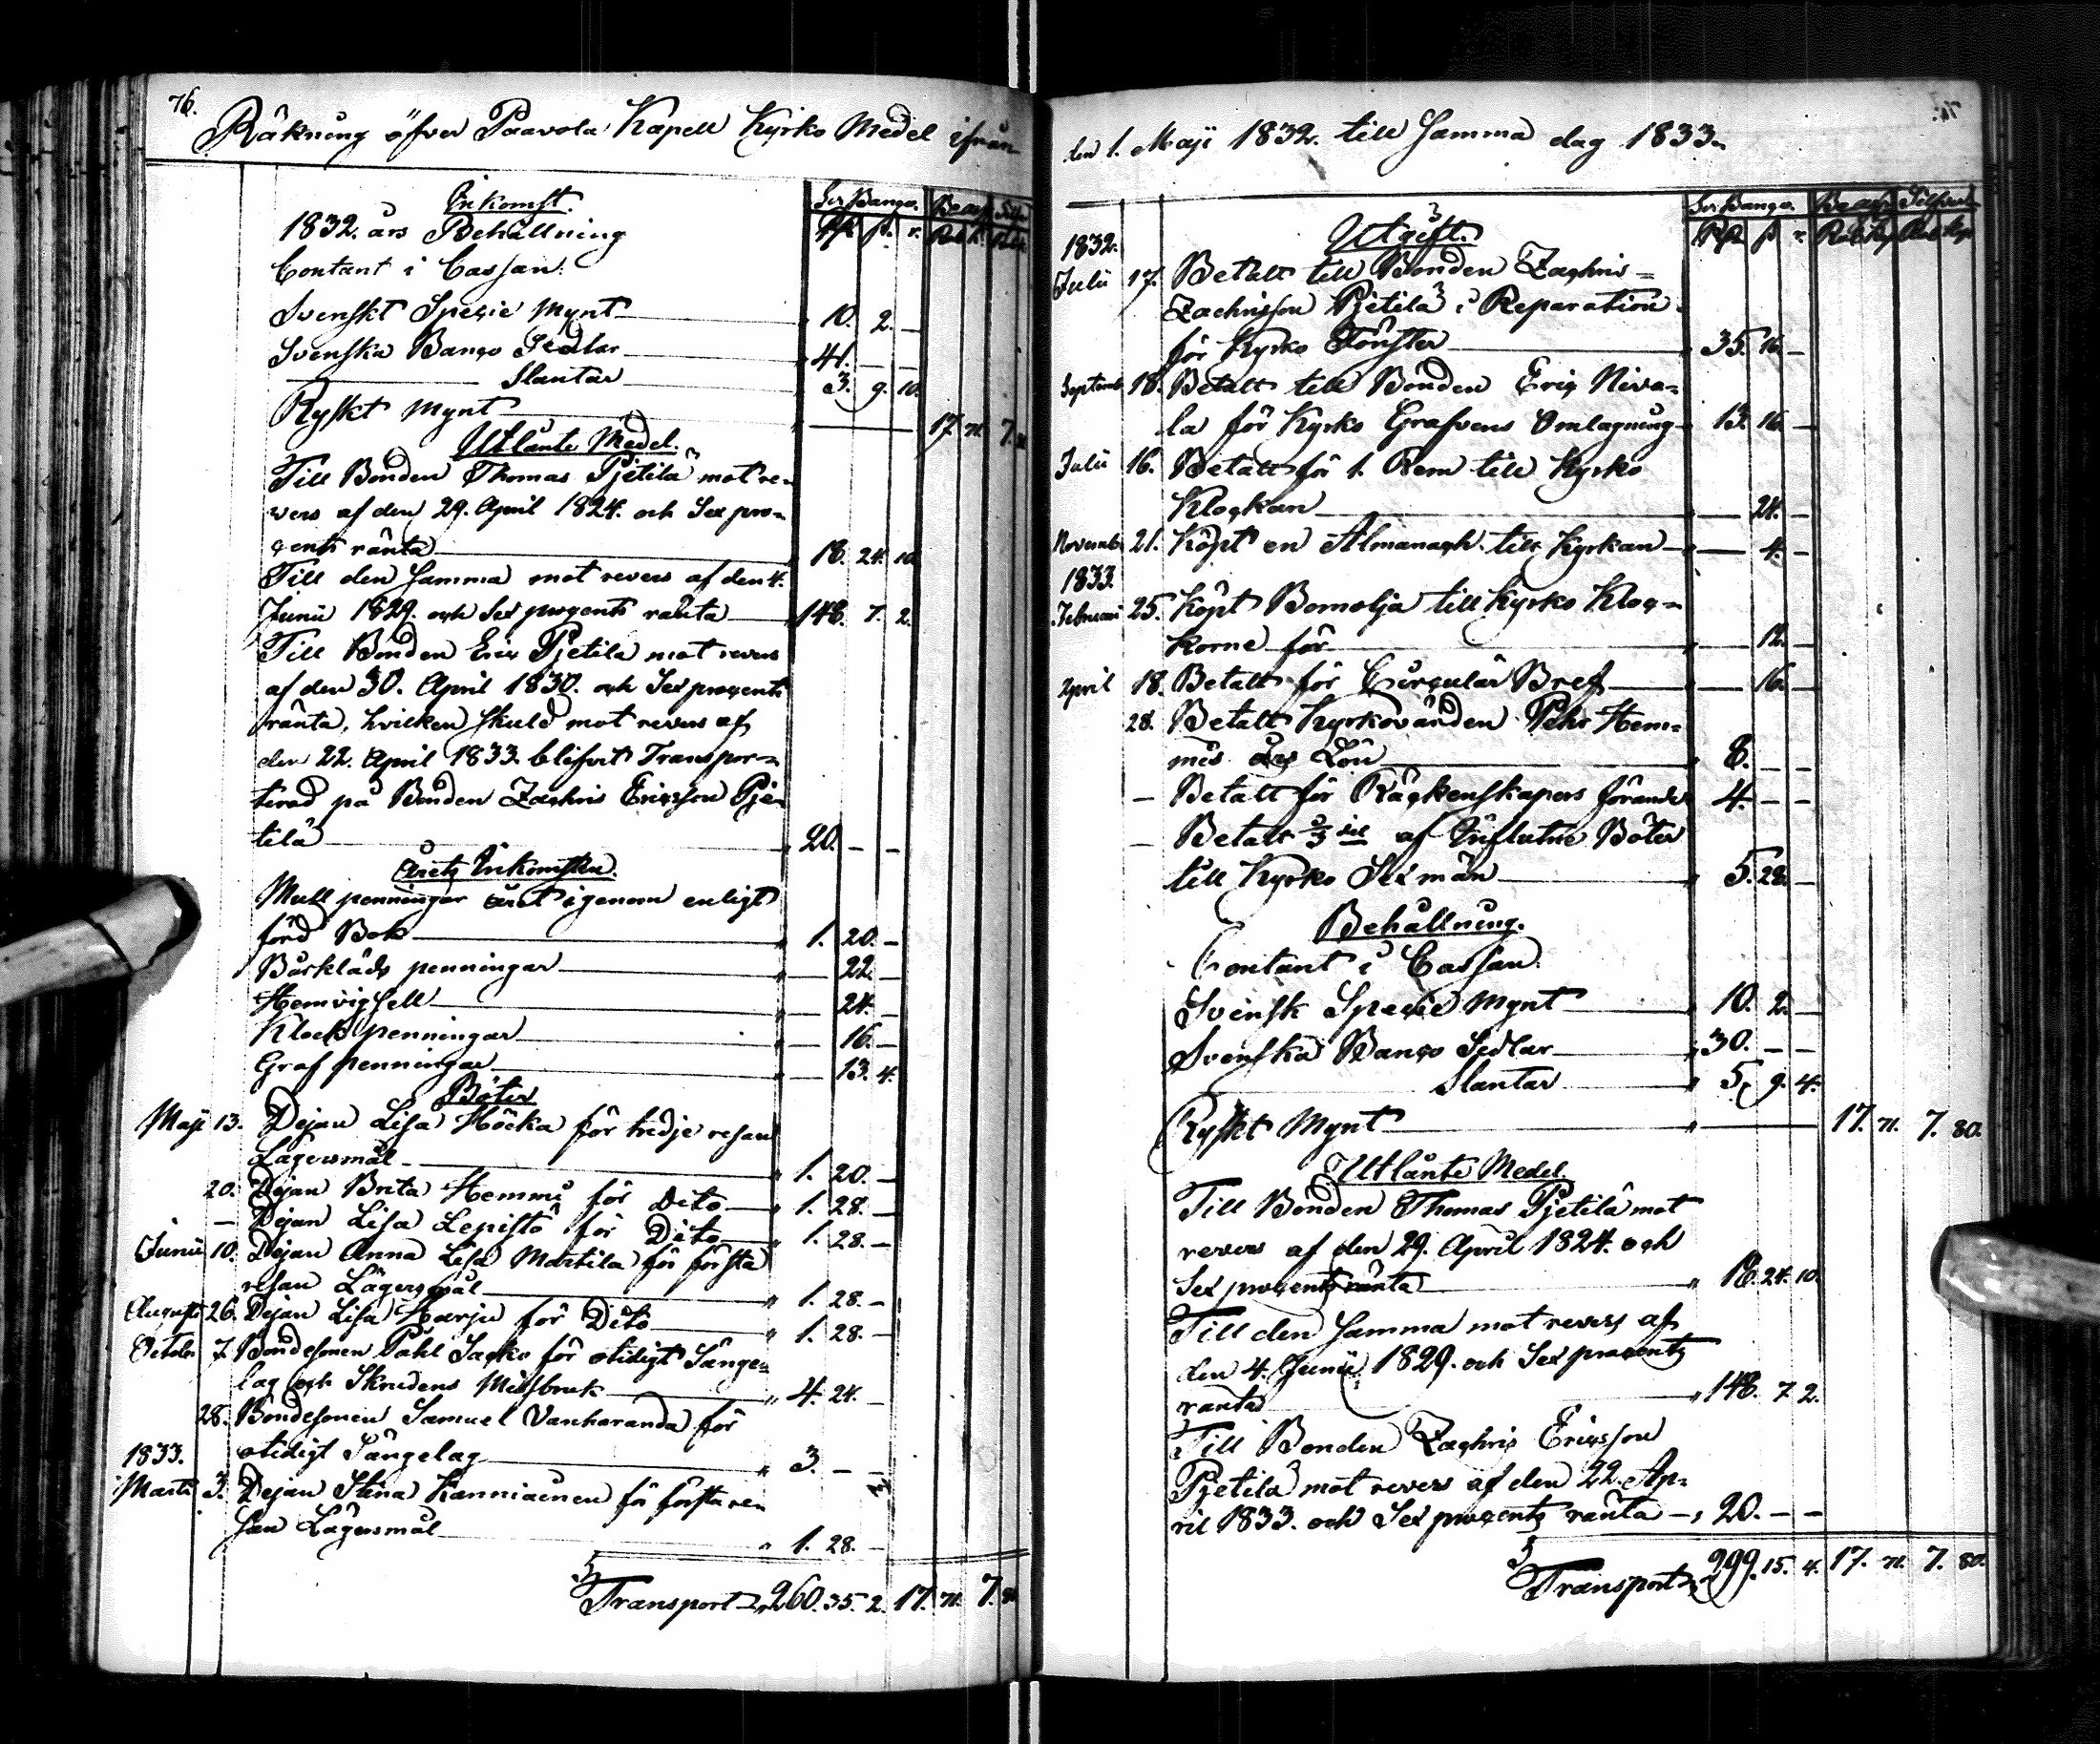 76.
Räkning öfver Paavola Kapell Kyrko Medel ifrån
Inkomst.
Sv. Banco.
1832. års Behållning
Rdr ß. r.
Contant i Cassan.
Svenskt Specie Mynt 10. 2. —
Svenska Banco Sedlar 41. — —
Slantar 3. 9. 10.
Ryskt Mynt 17. 71. 7.
Utlånte Medel.
Till Bonden Thomas Pjetilä mot re-
vers af den 29. April 1824. och Sex pro-
cents ränta 18. 24. 10.
Till den Samma mot revers af den 4.
Junii 1829. och Sex procents ränta 148. 7. 2.
Till Bonden Eric Pjetilä mot revers
af den 30. April 1830. och Sex procents
ränta, hvilken skuld mot revers af
den 22. April 1833. blifvit Transpor-
terad på Bonden Zachris Ericsson Pje-
tilä 20. — —
Årets Inkomster.
Mull penningar året igenom enligt
förd Bok 1. 20. —
Bårkläds penningar — 22. —
Hemvigsell — 24. —
Klock penningar — 16. —
Graf penningar — 13. 4.
Böter
Maji 13. Pigan Lisa Höcka för tredje resan
Lägersmål 1. 20. —
20. Pigan Brita Hemmi för Dito 1. 28. —
— Pigan Lisa Lepistö för Dito 1. 28. —
Junii 10. Pigan Anna Lisa Martila för första
resan Lägersmål 1. 28. —
Augusti 26. Pigan Lisa Harju för Dito 1. 28. —
October 7. Bondesonen Påhl Sacko för otidigt Sänge-
lag och Skrudens Missbruk 4. 24. —
28. Bondesonen Samuel Vanharanda för
otidigt Sängelag 3. — —
1833.
Martii 3. Pigan Stina Kanniainen för första re-
san Lägersmål 1. 28. —
Transport 260. 35. 2. 17. 71. 7.
den 1. Maji 1832. till Samma dag 1833.
Utgift.
Sv. Banco.
Rdr ß r.
1832.
Julii 17. Betalt till Bonden Zachris
Zachrisson Pjetilä i Reparation
för Kyrko Fönster 35. 16. —
Septemb. 18. Betalt till Bonden Eric Niva-
la för Kyrko Grafvens Omlagning 13. 16. —
Julii 16. Betalt för 1. Rem till Kyrko
Klockan — 24. —
Novemb. 21. Köpt en Almanach till Kyrkan — 4. —
1833.
Februari 25. Köpt Bomolja till Kyrko Kloc-
korne för — 12. —
April 18. Betalt för Circulär Bref — 16. —
28. Betalt Kyrkovärden Pehr Hem-
mis Lön 8. — —
— Betalt för Räckenskapers förande 4. — —
— Betalt 2/3 del af Influtne Böter
till Kyrko Sexmän 5. 28. —
Behållning.
Contant i Cassan.
Svensk Specie Mynt 10. 2. —
Svenska Banco Sedlar 30. — —
Slantar 5. 9. 4.
Ryskt Mynt 17. 71. 7. 80.
Utlånte Medel
Till Bonden Thomas Pjetilä mot
revers af den 29. April 1824. och
Sex procents ränta 18. 24. 10.
Till den Samma mot revers af
den 4. Junii 1829. och Sex procents
ränta 148. 7. 2.
Till Bonden Zachris Ericsson
Pjetilä mot revers af den 22. Ap-
ril 1833. och Sex procents ränta 20. — —
Transport 299. 15. 4. 17. 71. 7. 80.